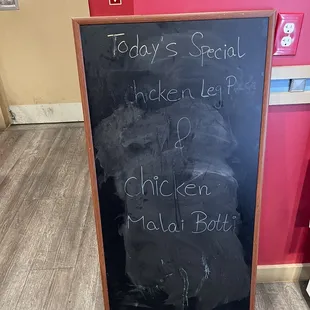 Today's Special
chicken Leg
&
chicken
Malai Botti